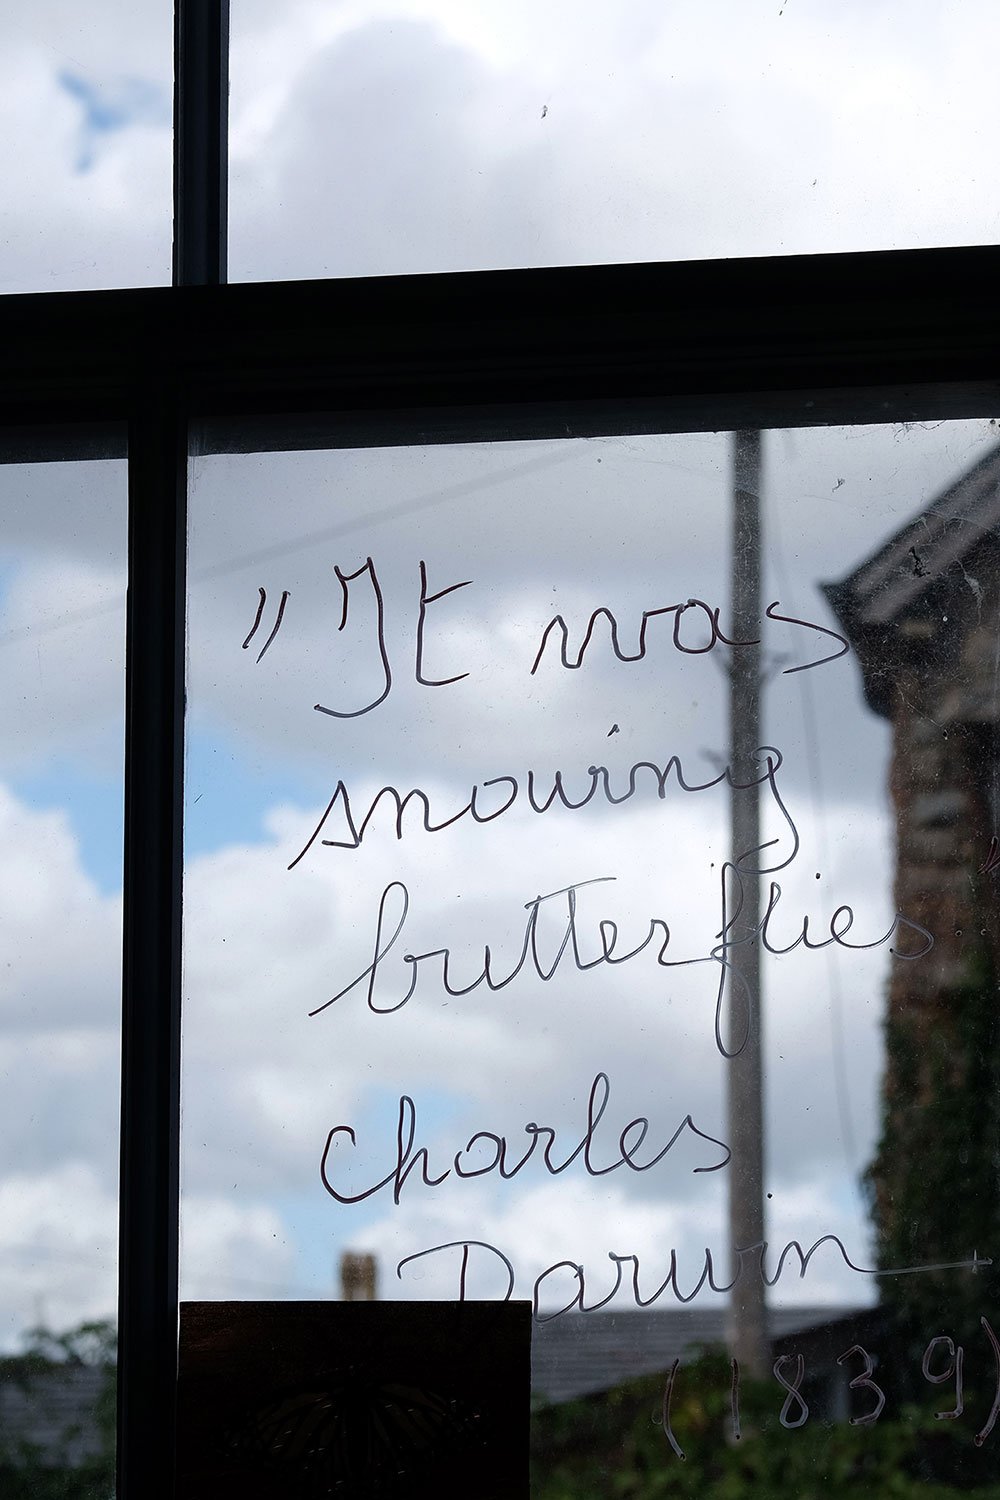 "It was
snowing
butterflies"
Charles
Darwin
(1839)